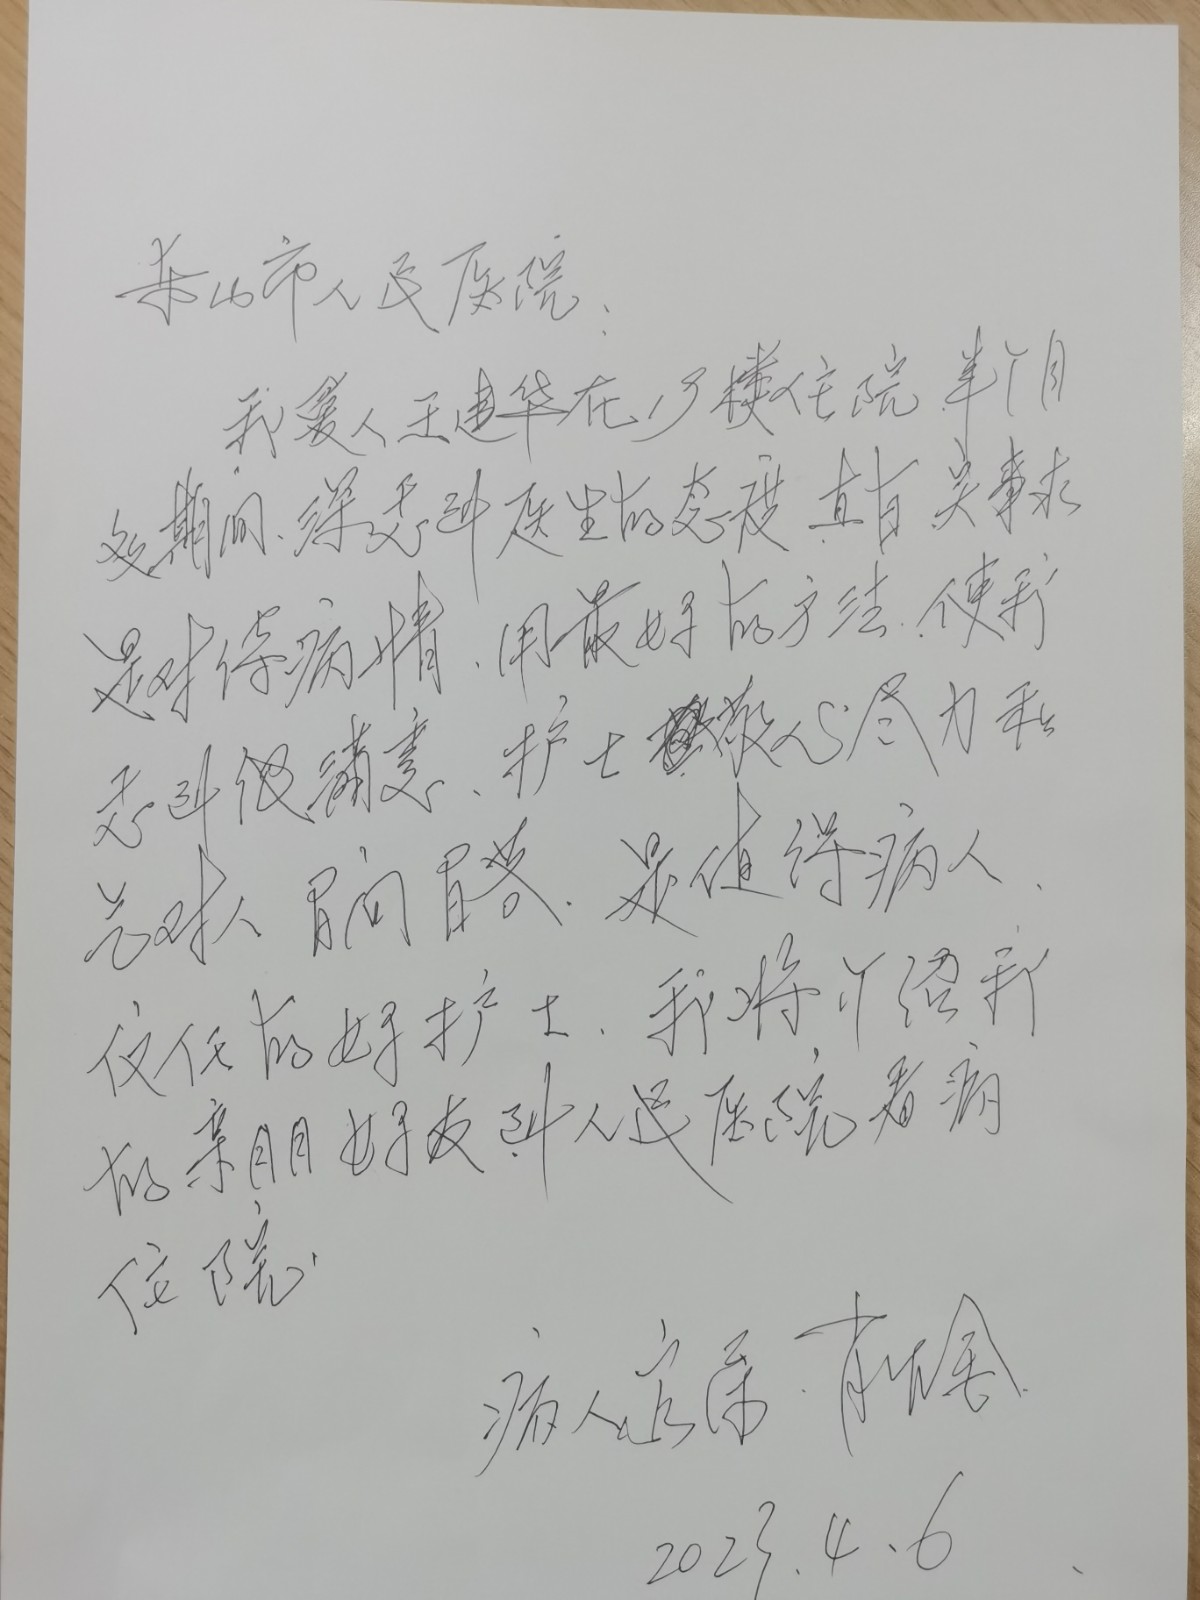 乐山市人民医院:
我爱人王建华在13楼住院半个月
多期间、深感到医生的态度真有实事求
是对待病情、用最好的方法、使我
感到很满意、护士敬心尽力和
总对人有问有答、是值得病人、
信任的好护士、我将介绍我
的亲朋好友到人民医院看病
住院.
病人家属、肖
2023.4.6